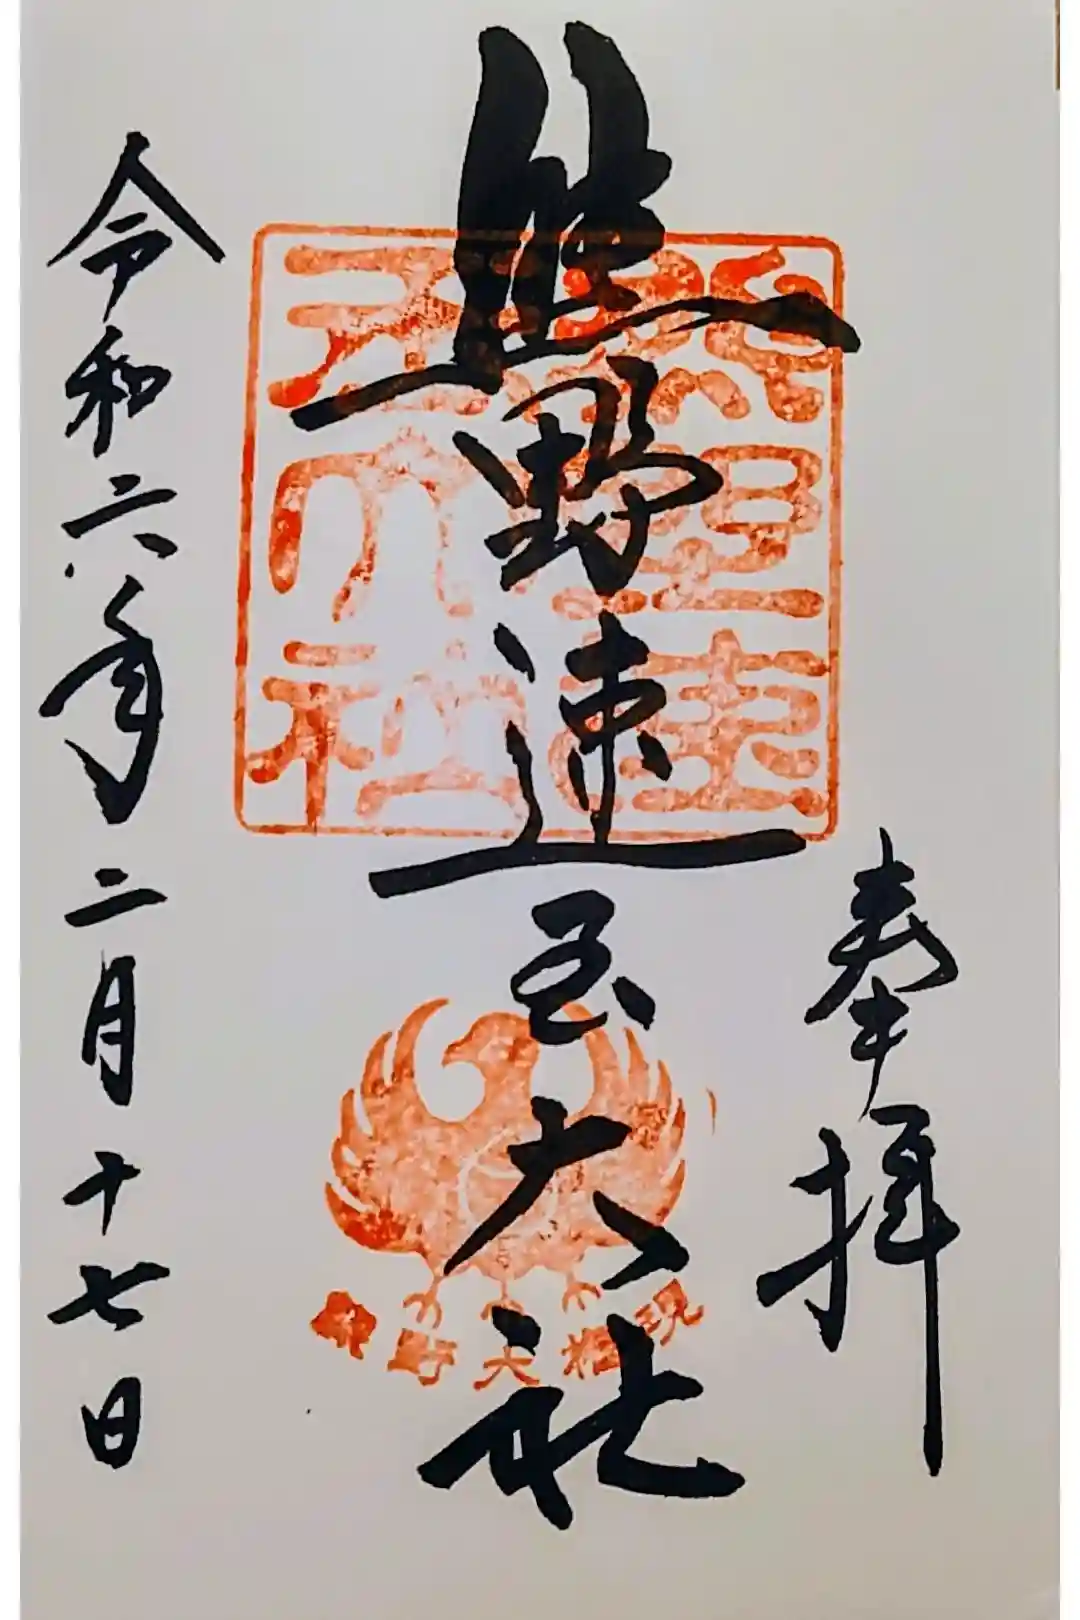 奉拝
熊野速玉大社
熊野速
玉大社
熊野大権現
令和六年二月十七日